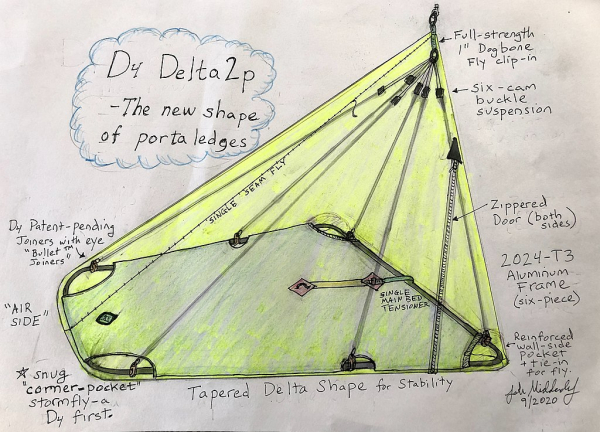 D4 Delta2p
-The new shape
of portaledges
Full-strength
1" Dogbone
Fly clip-in
Six-cam
buckle
suspension
SINGLE SEAM FLY
Zippered
Door (both
sides)
D4 Patent-pending
Joiners with eye
"Bullet™
Joiners"
2024-T3
Aluminum
Frame
(six-piece)
SINGLE
MAIN BED
TENSIONER
"AIR
SIDE"
Reinforced
wall-side
pocket
+ tie-in
for fly.
☆ snug
"corner-pocket"
stormfly-a
D4 first.
Tapered Delta Shape for Stability
9/2020